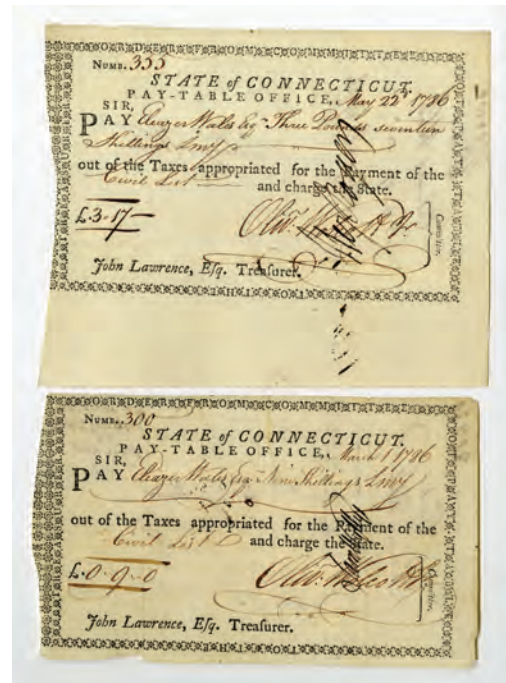 O O R D E R F R O M C O M M I T T E E
NUMB. 355
STATE of CONNECTICUT,
PAY-TABLE OFFICE, May 22d 1786
SIR,
PAY Eleazer Wales Esqr Three Pounds seventeen
Shillings Lmy
out of the Taxes appropriated for the Payment of the
Civil List and charge the State.
£.3-17-
Committee.
John Lawrence, Esq. Treasurer.
O O R D E R F R O M C O M M I T T E E
NUMB. 300
STATE of CONNECTICUT.
PAY-TABLE OFFICE, March 1 1786
SIR,
PAY Eleazer Wales Esqr Nine Shillings Lmy
out of the Taxes appropriated for the Payment of the
Civil List and charge the State.
£.0-9-0
Oliv. Wolcott
Committee.
John Lawrence, Esq. Treasurer.